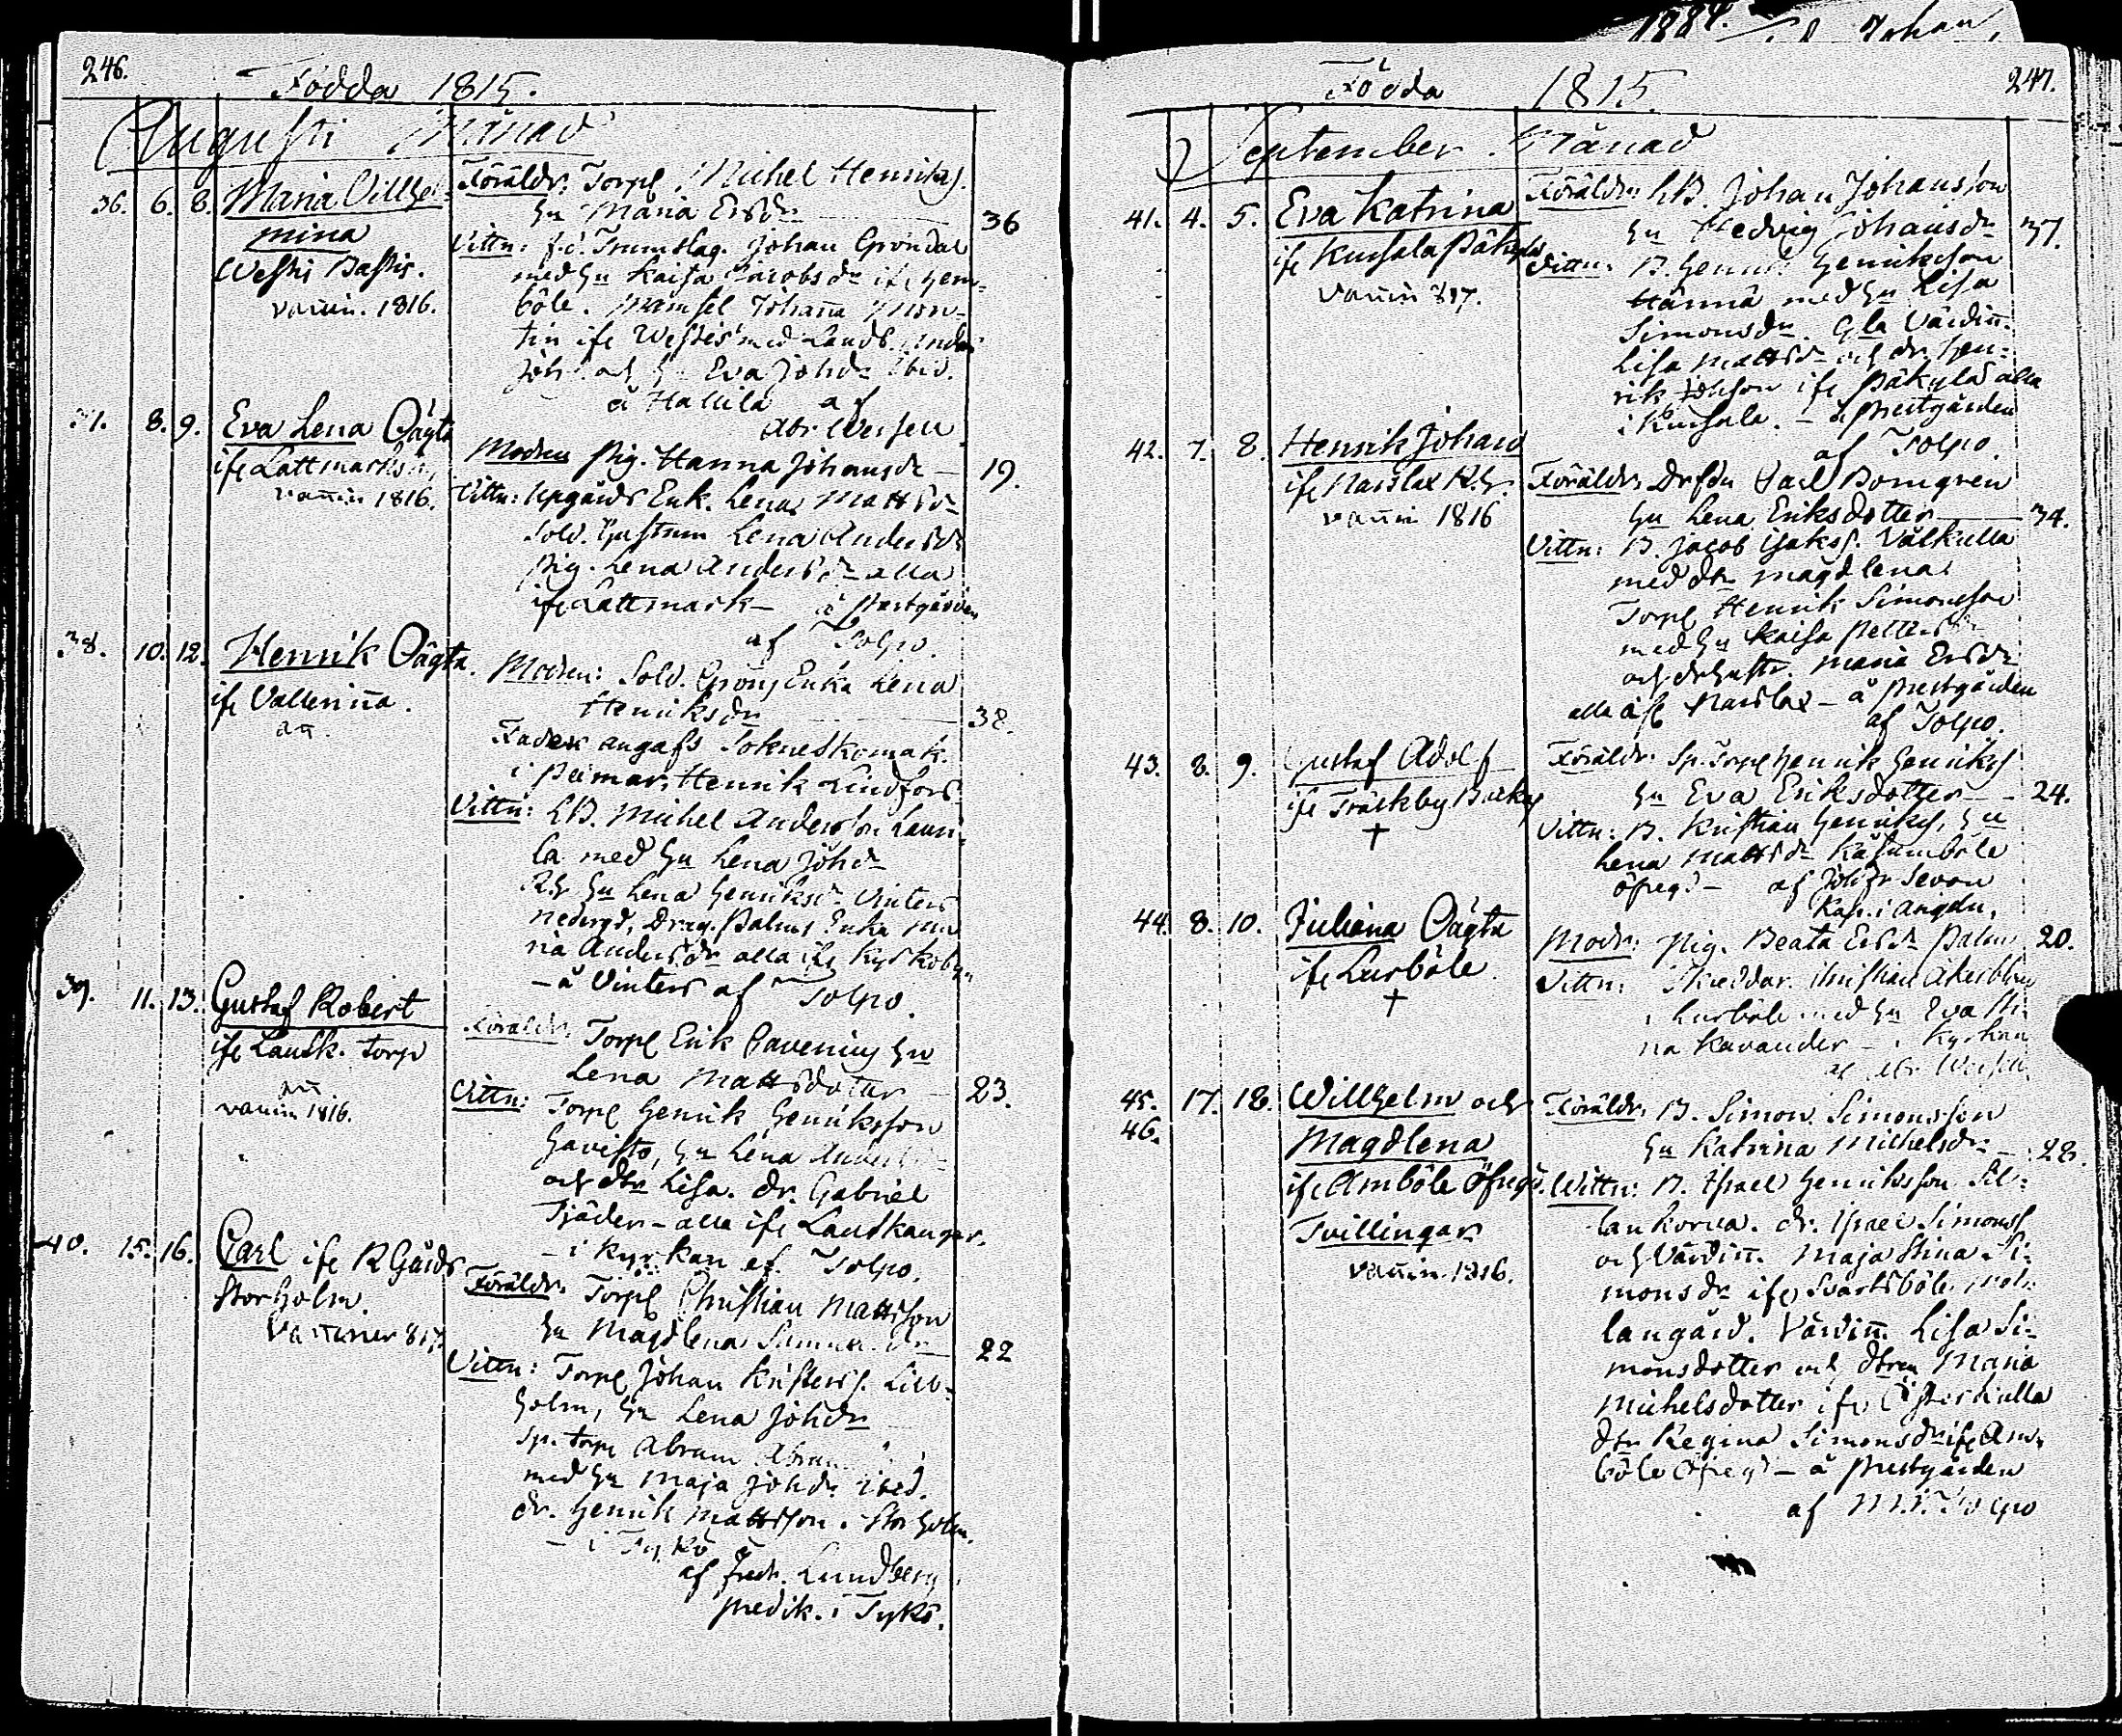 246.
Födda 1815.
Augusti Månad
36. 6. 8. Maria Villhel=
mina
Westis Bastis.
vaccin. 1816.
Föräldr: Torp. Michel Henriks.
hu Maria Ersdr 36
Vittn: f.d. Trumslag. Johan Gröndal
med hu Kaisa Jacobsdr ifr Hem=
böle. Mamsel Johanna
ifr Westis med Landb. Anders
Joh. och hu Eva Johdr ibid.
å Hallila af
Abr. Weisell
37. 8. 9. Eva Lena Oägta
ifr Lattmark
vaccin 1816.
Modren Pig. Hanna Johansdr — 19.
Vittn: Uxgårds Enk. Lena Mattsdr
Sold. Hustrun Lena Andersdr
Pig. Lena Andersdr alla
ifr Lattmark — å Prestgården
af Tolpo.
38. 10. 12. Henrik Oägta.
ifr Vallerinna.
Modren: Sold. Grönj Enka Lena
Henriksdr 38.
Fader angafs Sokneskomak.
i Peimar, Henrik Lindfors
Vittn: LB. Michel Andersson Laun=
la med hu Lena Johdr
R.h. hu Lena Henriksdr Vinters
nedergd, Drag. Palms Enka Ma
ria Andersdr alla ifr Kyrkobyn
— å Vinters af Tolpo.
39. 11. 13. Gustaf Robert
ifr Lausk. torp
vaccin 1816.
Föräldr: Torp. Erik Pavenius hu
Lena Mattsdotter — 23.
Vittn: Torp. Henrik Henriksson
Havisto, hu Lena Andersdr
och dtr Lisa. dr. Gabriel
Tjäder — alla ifr Lauskanger.
— i Kyrkan af Tolpo.
40. 15. 16. Carl ifr R Gårds
Storholm.
Vacciner 817.
Föräldr: Torp. Christian Mattsson
hu Magdlena 22
Vittn: Torp. Johan Kristers. Lill=
holm, hu Lena Johdr
Sp. torp. Abram
med hu Maja Johdr ibid.
dr. Henrik Mattsson. Storholm.
— i Tykö
af Fredr. Lundberg
predik. i Tykö.
1884. Johan
Födda 1815. 247.
September Månad
41. 4. 5. Eva Katrina
ifr Kursala Päkylä
vaccin 817.
Föräldr: LB. Johan Johansson
hu Hedvig Johansdr 37.
Vittn: B. Henrik Henriksson
Hännä med hu Lisa
Simonsdr Gla Värdinn.
Lisa Mattsdr och dr. Hen=
rik Johsson ifr Päkylä alla
i Kursala. — å Prestgården
af Tolpo.
42. 7. 8. Henrik Johan
ifr Marslax R.h.
vaccin 1816
Föräldr: Drfdn Carl Bomgren
hu Lena Eriksdotter — 34.
Vittn: B. Jacob Isaks. Välkulla
med dtr Magdlena
Torp. Henrik Simonsson
med hu Kaisa
och drhustr. Maria Ersdr
alla ifr Marslax — å Prestgården
af Tolpo.
43. 8. 9. Gustaf Adolf
ifr Träskby
†
Föräldr: Sp. Torp. Henrik Henriks
hu Eva Eriksdotter — 24.
Vittn: B. Kristian Henriks, hu
Lena Mattsdr Kasumböle
öfregd — af Joh. Fr Sevon
Kap. i Angeln.
44. 8. 10. Juliana Oägta
ifr Lurböle.
†
Modr: Pig. Beata Ersdr Palm 20.
Vittn: Skräddar. Christian Åkerblom
i Lurböle med hu Eva Sti
na Kavander — i Kyrkan
af Abr. Weisell
45. 17. 18. Willhelm och
46. Magdlena
ifr Amböle Öfregd.
Tvillingar
vaccin. 1816.
Föräldr: B. Simon Simonsson
hu Katrina Michelsdr — 28.
Wittn: B. Israel Henriksson Sil=
lankorva. dr. Israel Simonss
och Värdinn. Maja Stina Si=
monsdr ifr Svartsböle Mel=
langård. Värdinn. Lisa Si=
monsdotter och dtren Maria
Michelsdotter ifr Österkulla
dtr Regina Simonsdr ifr Am=
böle Öfregd — å Prestgården
af M.V. Tolpo